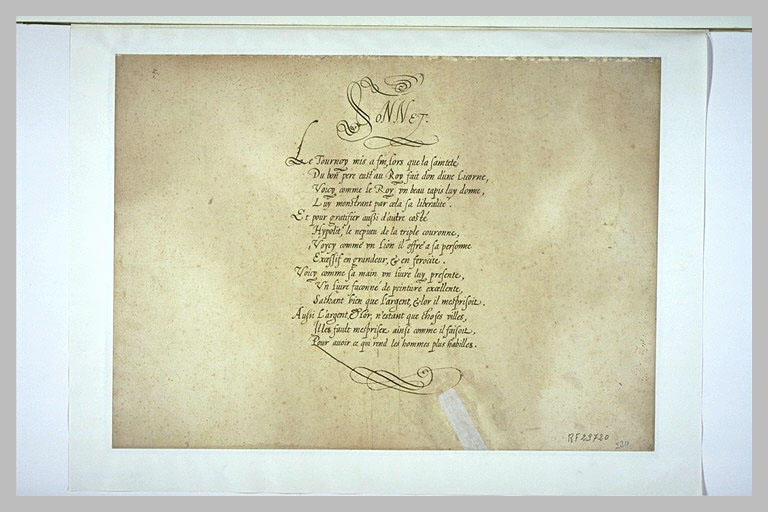 SoNNeT.
Le Tournoy mis a fin, lors que la sainteté
Du bon pere eust au Roy fait don d'une Licorne,
Voicy comme le Roy vn beau tapis luy donne,
Luy monstrant par cela sa liberalité.
Et pour gratifier aussi d'autre costé
Hypolite, le nepueu de la triple couronne,
Voycy comme vn Lion il offre a sa personne
Excessif en grandeur, & en ferocite.
Voicy comme sa main vn liure luy presente,
Vn liure façonné de peinture excellente,
Sachant bien que l'argent, & lor il mesprisoit.
Aussi L'argent, & lor, n'estant que choses villes,
Il les fault mespriser ainsi comme il faisoit,
Pour auoir ce qui rend les hommes plus habilles.
RF 29720